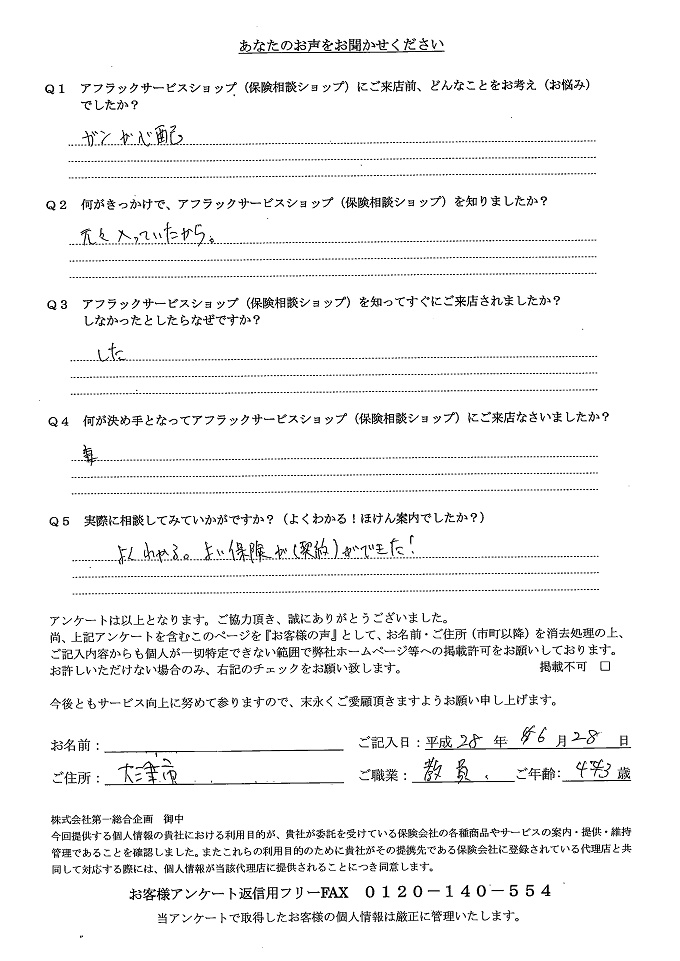 あなたのお声をお聞かせください
Q1 アフラックサービスショップ（保険相談ショップ）にご来店前、どんなことをお考え（お悩み）
でしたか？
ガンが心配
Q2 何がきっかけで、アフラックサービスショップ（保険相談ショップ）を知りましたか？
元々入っていたから。
Q3 アフラックサービスショップ（保険相談ショップ）を知ってすぐにご来店されましたか？
しなかったとしたらなぜですか？
した
Q4 何が決め手となってアフラックサービスショップ（保険相談ショップ）にご来店なさいましたか？
Q5 実際に相談してみていかがですか？（よくわかる！ほけん案内でしたか？）
よくわかる。よい保険が（契約）ができた！
アンケートは以上となります。ご協力頂き、誠にありがとうございました。
尚、上記アンケートを含むこのページを『お客様の声』として、お名前・ご住所（市町以降）を消去処理の上、
ご記入内容からも個人が一切特定できない範囲で弊社ホームページ等への掲載許可をお願いしております。
お許しいただけない場合のみ、右記のチェックをお願い致します。 掲載不可 □
今後ともサービス向上に努めて参りますので、末永くご愛顧頂きますようお願い申し上げます。
お名前： ご記入日：平成 28 年 6 月 28 日
ご住所： ご職業： 教員 ご年齢： 43 歳
株式会社第一総合企画 御中
今回提供する個人情報の貴社における利用目的が、貴社が委託を受けている保険会社の各種商品やサービスの案内・提供・維持
管理であることを確認しました。またこれらの利用目的のために貴社がその提携先である保険会社に登録されている代理店と共
同して対応する際には、個人情報が当該代理店に提供されることにつき同意します。
お客様アンケート返信用フリーFAX 0120－140－554
当アンケートで取得したお客様の個人情報は厳正に管理いたします。